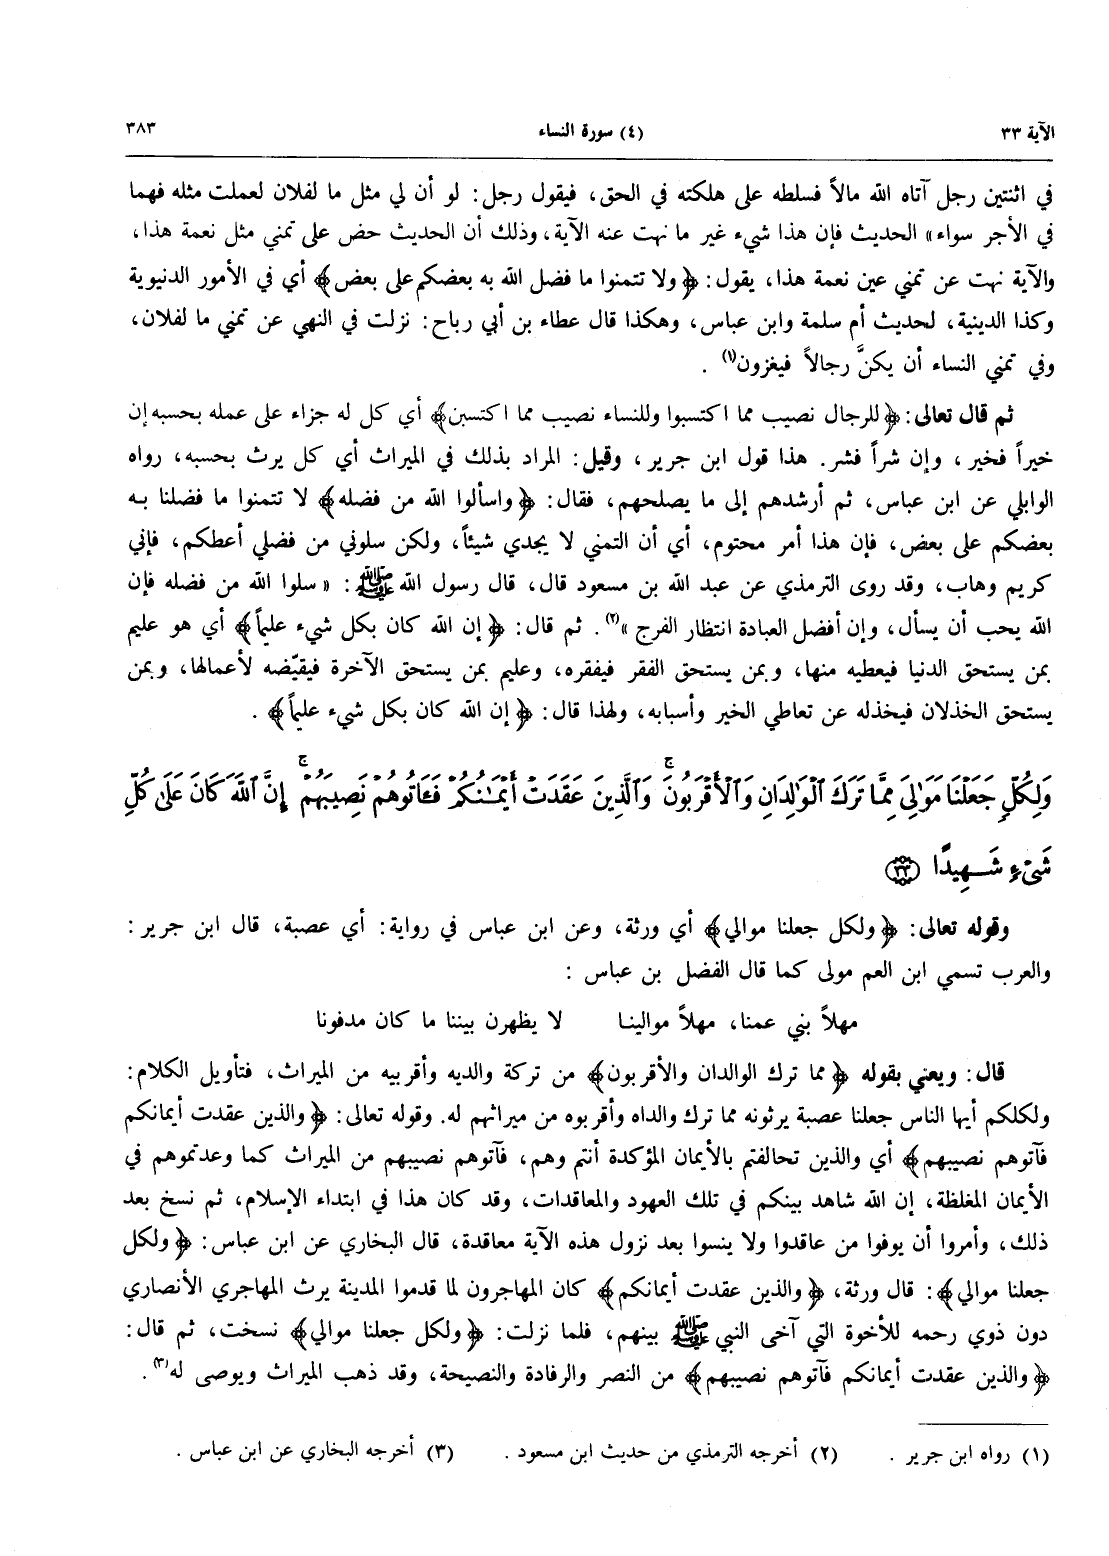 الآية ٣٣
(٤) سورة النساء
٣٨٣
في اثنتين رجل آتاه الله مالاً فسلطه على هلكته في الحق، فيقول رجل: لو أن لي مثل ما لفلان لعملت مثله فهما
في الأجر سواء» الحديث فإن هذا شيء غير ما نهت عنه الآية، وذلك أن الحديث حض على تمني مثل نعمة هذا،
والآية نهت عن تمني عين نعمة هذا، يقول: ﴿ولا تتمنوا ما فضل الله به بعضكم على بعض﴾ أي في الأمور الدنيوية
وكذا الدينية، لحديث أم سلمة وابن عباس، وهكذا قال عطاء بن أبي رباح: نزلت في النهي عن تمني ما لفلان،
وفي تمني النساء أن يكنَّ رجالاً فيغزون(١).
ثم قال تعالى: ﴿للرجال نصيب مما اكتسبوا وللنساء نصيب مما اكتسبن﴾ أي كل له جزاء على عمله بحسبه إن
خيراً فخير، وإن شراً فشر. هذا قول ابن جرير، وقيل: المراد بذلك في الميراث أي كل يرث بحسبه، رواه
الوابلي عن ابن عباس، ثم أرشدهم إلى ما يصلحهم، فقال: ﴿واسألوا الله من فضله﴾ لا تتمنوا ما فضلنا به
بعضكم على بعض، فإن هذا أمر محتوم، أي أن التمني لا يجدي شيئاً، ولكن سلوني من فضلي أعطكم، فإني
كريم وهاب، وقد روى الترمذي عن عبد الله بن مسعود قال، قال رسول الله ﷺ: «سلوا الله من فضله فإن
الله يحب أن يسأل، وإن أفضل العبادة انتظار الفرج»(٢). ثم قال: ﴿إن الله كان بكل شيء عليماً﴾ أي هو عليم
بمن يستحق الدنيا فيعطيه منها، وبمن يستحق الفقر فيفقره، وعليم بمن يستحق الآخرة فيقيّضه لأعمالها، وبمن
يستحق الخذلان فيخذله عن تعاطي الخير وأسبابه، ولهذا قال: ﴿إن الله كان بكل شيء عليماً﴾.
وَلِكُلٍّ جَعَلْنَا مَوَٰلِىَ مِمَّا تَرَكَ ٱلْوَٰلِدَانِ وَٱلْأَقْرَبُونَ ۚ وَٱلَّذِينَ عَقَدَتْ أَيْمَـٰنُكُمْ فَـَٔاتُوهُمْ نَصِيبَهُمْ ۚ إِنَّ ٱللَّهَ كَانَ عَلَىٰ كُلِّ
شَىْءٍ شَهِيدًا ٣٣
وقوله تعالى: ﴿ولكل جعلنا موالي﴾ أي ورثة، وعن ابن عباس في رواية: أي عصبة، قال ابن جرير:
والعرب تسمي ابن العم مولى كما قال الفضل بن عباس:
مهلاً بني عمنا، مهلاً موالينا لا يظهرن بيننا ما كان مدفونا
قال: ويعني بقوله ﴿مما ترك الوالدان والأقربون﴾ من تركة والديه وأقربيه من الميراث، فتأويل الكلام:
ولكلكم أيها الناس جعلنا عصبة يرثونه مما ترك والداه وأقربوه من ميراثهم له. وقوله تعالى: ﴿والذين عقدت أيمانكم
فآتوهم نصيبهم﴾ أي والذين تحالفتم بالأيمان المؤكدة أنتم وهم، فآتوهم نصيبهم من الميراث كما وعدتموهم في
الأيمان المغلظة، إن الله شاهد بينكم في تلك العهود والمعاقدات، وقد كان هذا في ابتداء الإسلام، ثم نسخ بعد
ذلك، وأمروا أن يوفوا من عاقدوا ولا ينسوا بعد نزول هذه الآية معاقدة، قال البخاري عن ابن عباس: ﴿ولكل
جعلنا موالي﴾: قال ورثة، ﴿والذين عقدت أيمانكم﴾ كان المهاجرون لما قدموا المدينة يرث المهاجري الأنصاري
دون ذوي رحمه للأخوة التي آخى النبي ﷺ بينهم، فلما نزلت: ﴿ولكل جعلنا موالي﴾ نسخت، ثم قال:
﴿والذين عقدت أيمانكم فآتوهم نصيبهم﴾ من النصر والرفادة والنصيحة، وقد ذهب الميراث ويوصى له(٣).
(١) رواه ابن جرير. (٢) أخرجه الترمذي من حديث ابن مسعود. (٣) أخرجه البخاري عن ابن عباس.